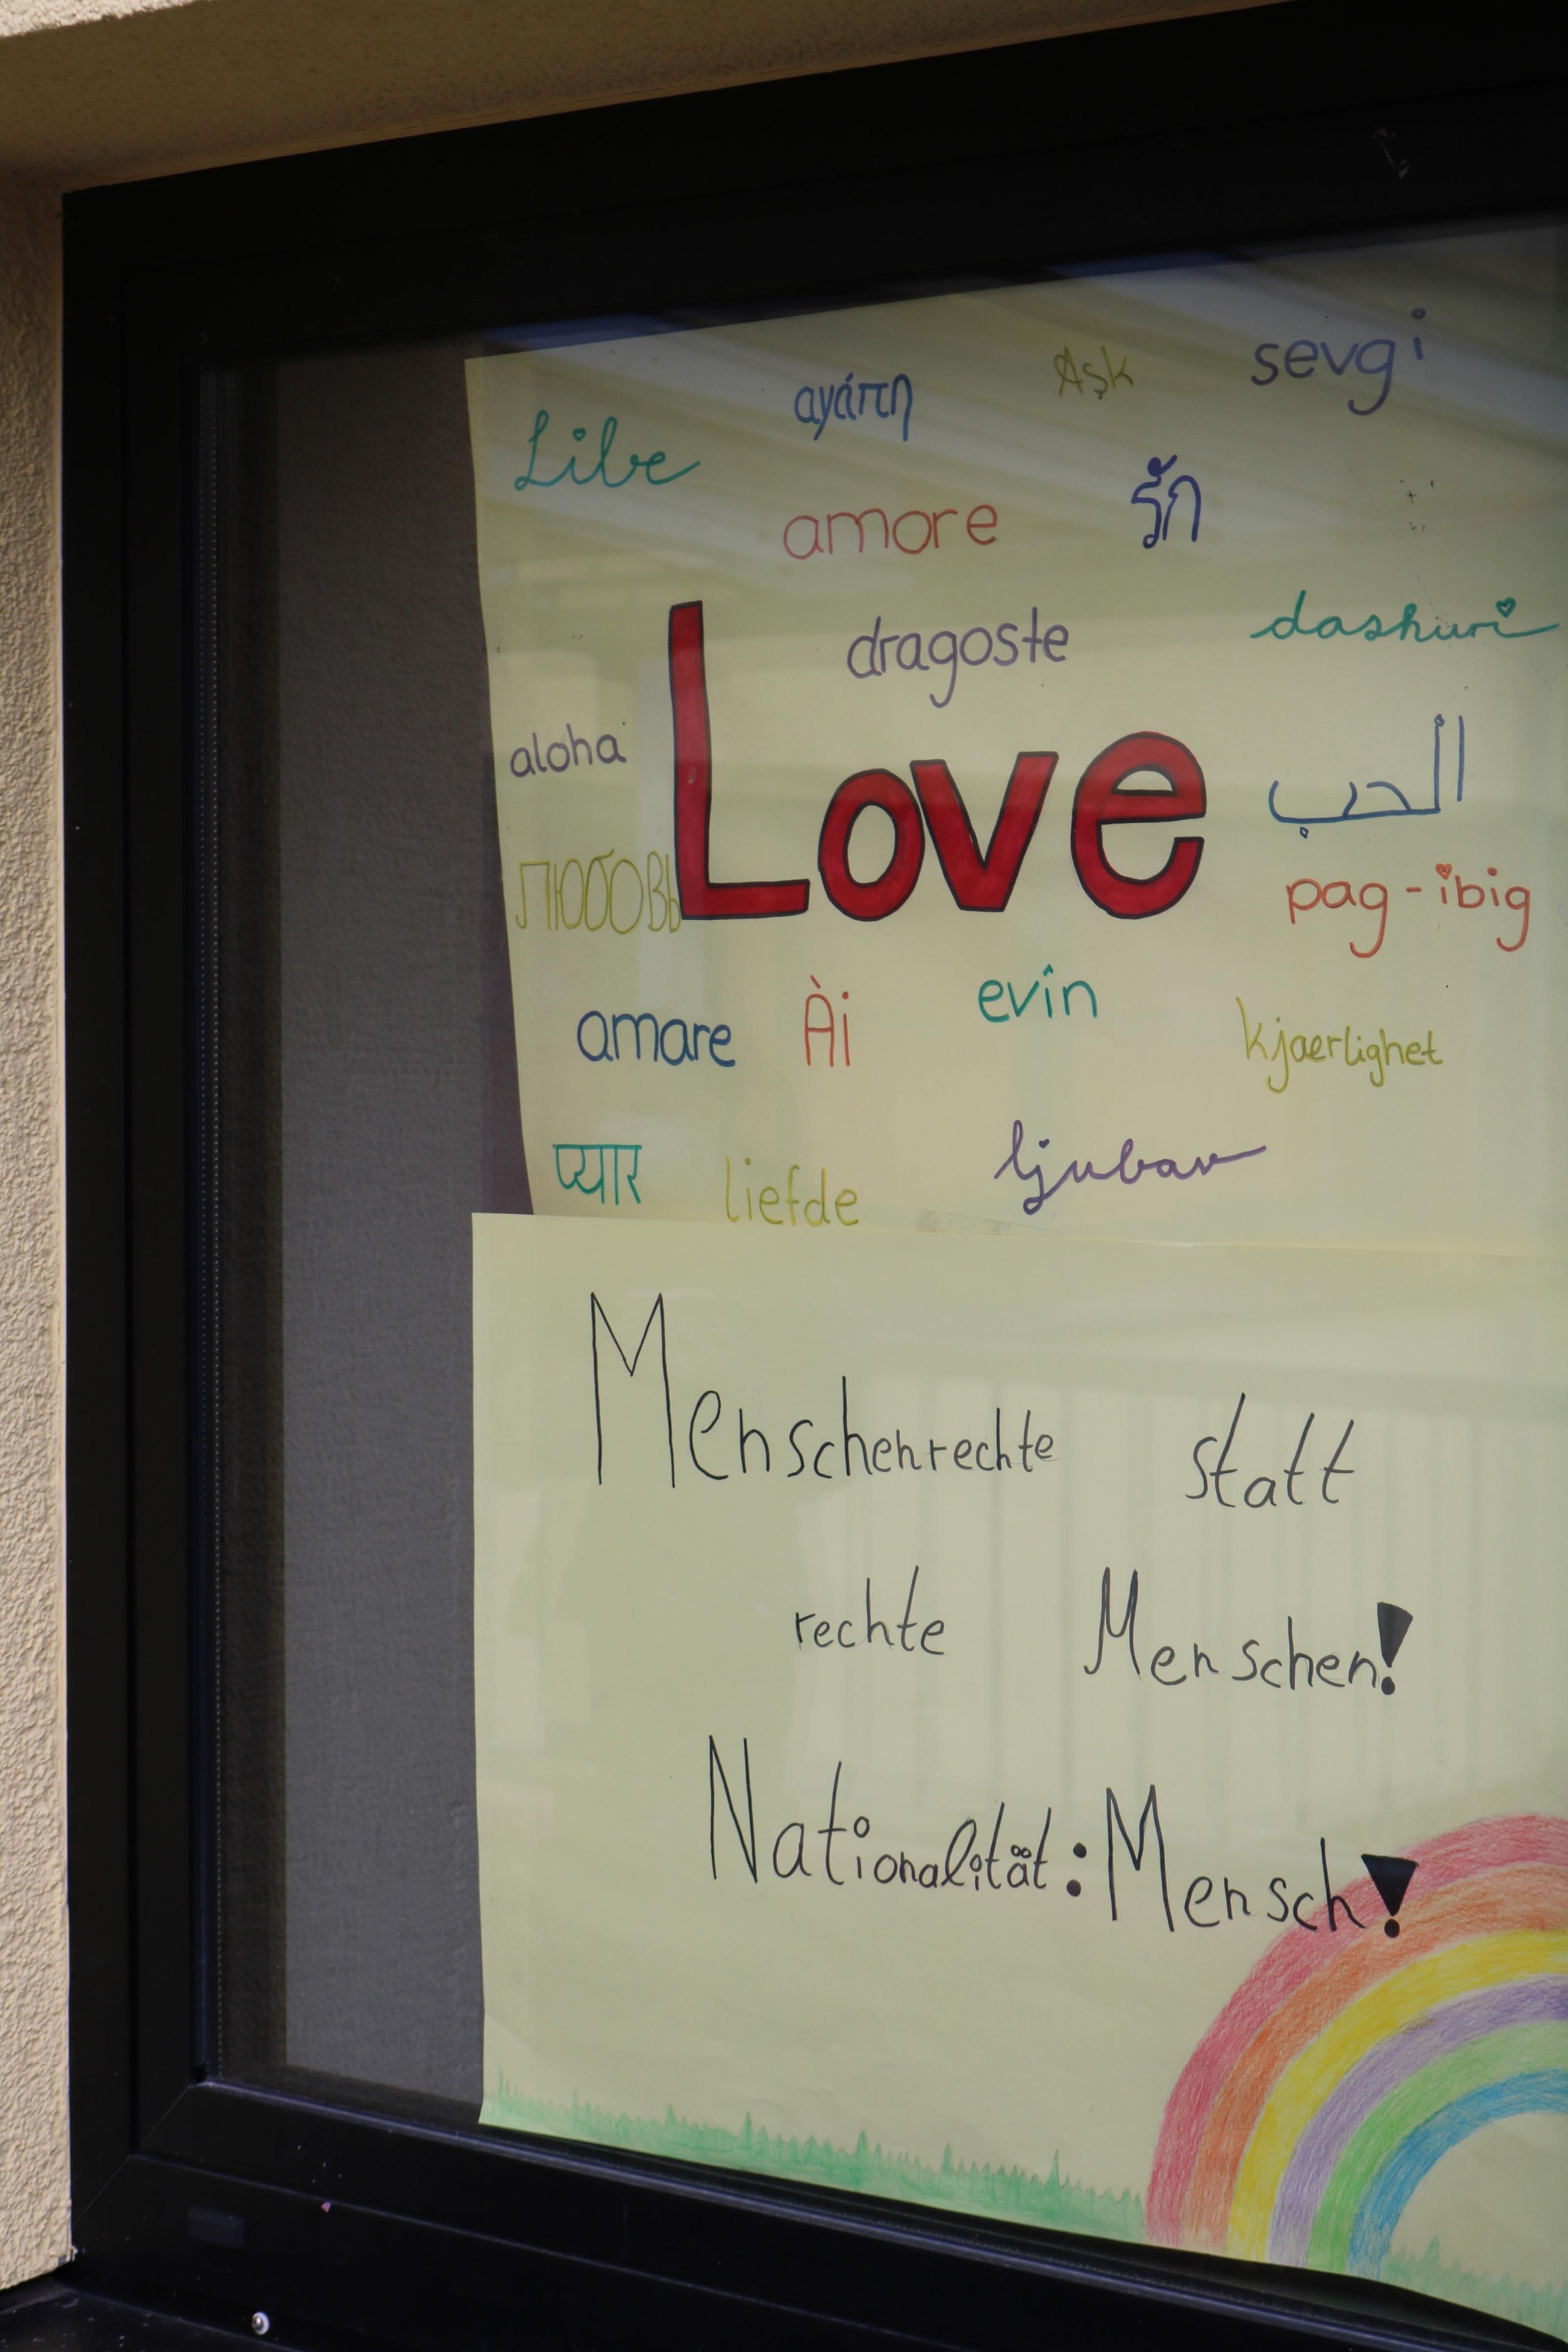 sevgi
Aşk
αγάπη
Libe
รัก
amore
dashuri
dragoste
aloha
Love
الحب
любовь
pag-ibig
evîn
amare
Ài
kjaerlighet
ljubav
प्यार
liefde
Menschenrechte statt
rechte Menschen!
Nationalität: Mensch!